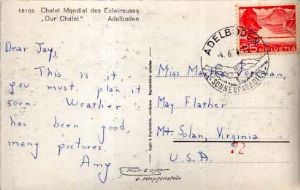 18102 Chalet Mondial des Eclaireuses
„Our Chalet" Adelboden
Dear Joy,
This is it.
you must plan it
soon. Weather
has been good,
many pictures.
Amy
ADELBODEN
HELVETIA
Miss
May Flather
Mt. Solan, Virginia
U.S.A.